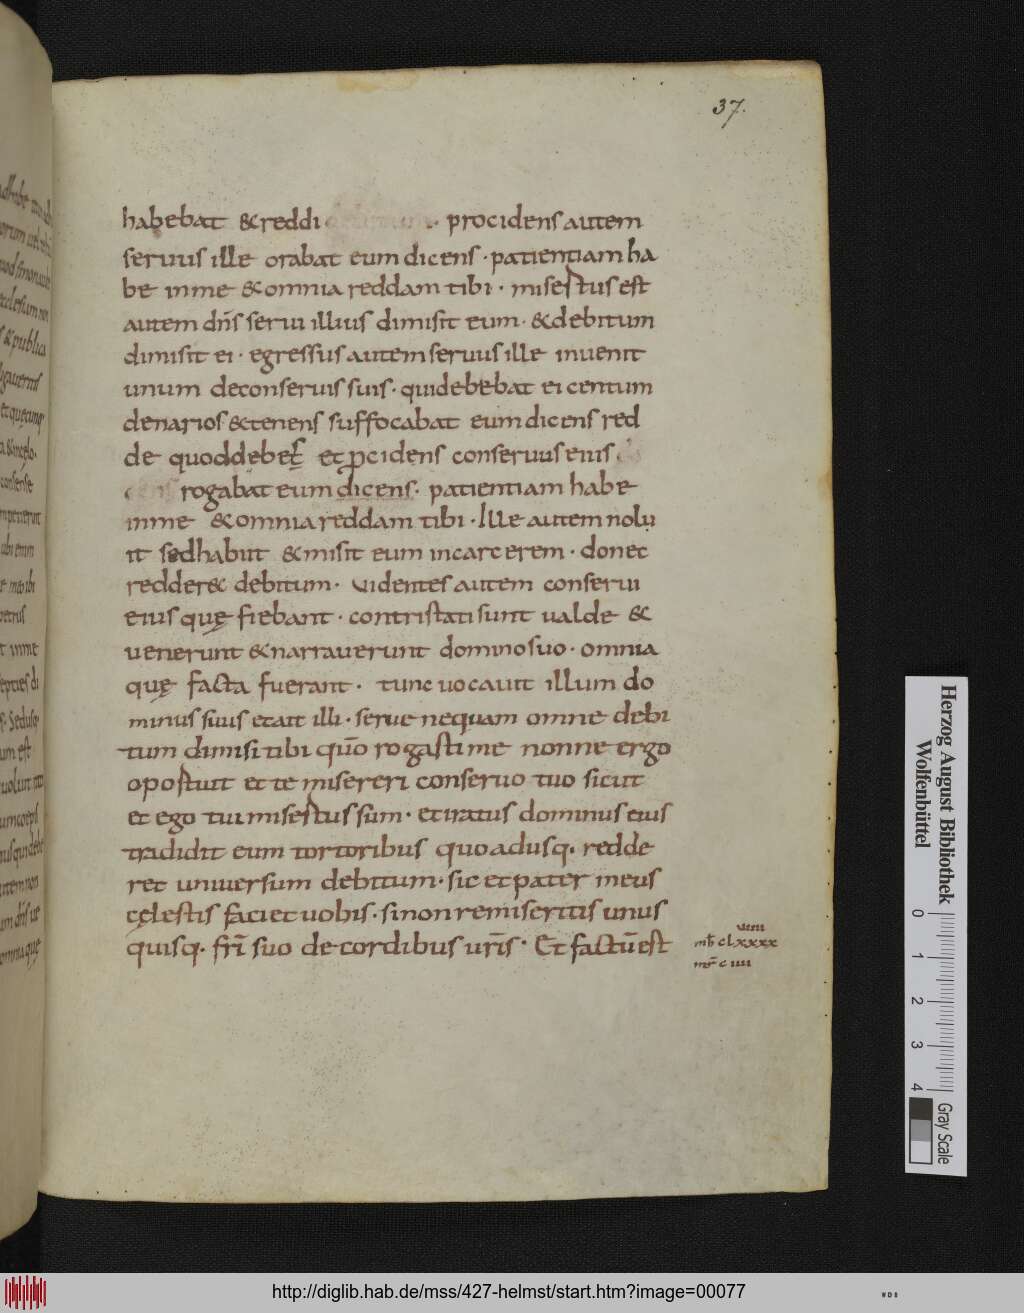 37.
habebat &reddi · procidens autem
seruus ille orabat eum dicens · patientiam ha
be inme &omnia reddam tibi · misertus est
autem dn̄s serui illius dimisit eum · &debitum
dimisit ei · egressus autem seruus ille inuenit
unum deconseruis suis · quidebebat ei centum
denarios &tenens suffocabat eum dicens red
de quoddebes et pcidens conseruus eius
rogabat eum dicens · patientiam habe
inme &omnia reddam tibi · Ille autem nolu
it sedhabiit &misit eum incarcerem · donec
redder& debitum · videntes autem conserui
eius quę fiebant · contristati sunt ualde &
uenerunt &narrauerunt domino suo · omnia
quę facta fuerant · tunc uocauit illum do
minus suus etait illi · serue nequam omne debi
tum dimisi tibi quō rogasti me nonne ergo
oportuit et te misereri conseruo tuo sicut
et ego tui misertus sum · etiratus dominus eius
tradidit eum tortoribus quoadusq· redde
ret uniuersum debitum · sic et pater meus
cęlestis faciet uobis · sinon remiseritis unus
quisq· frī suo de cordibus urīs · Et factū est
uiiii
clxxxx
c iiii
Herzog August Bibliothek
Wolfenbüttel
0 1 2 3 4
Gray Scale
http://diglib.hab.de/mss/427-helmst/start.htm?image=00077